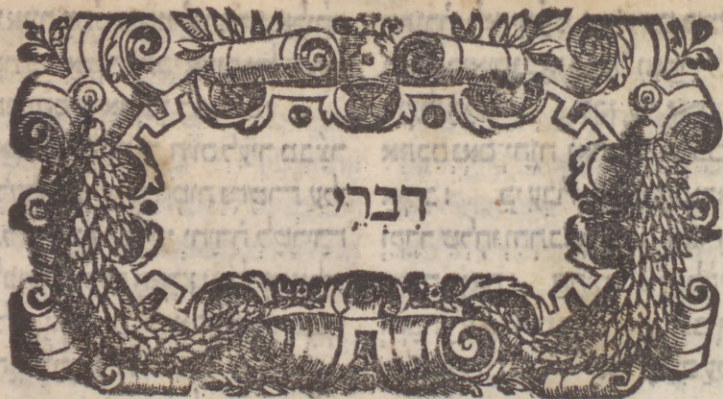 דִבְרֵי